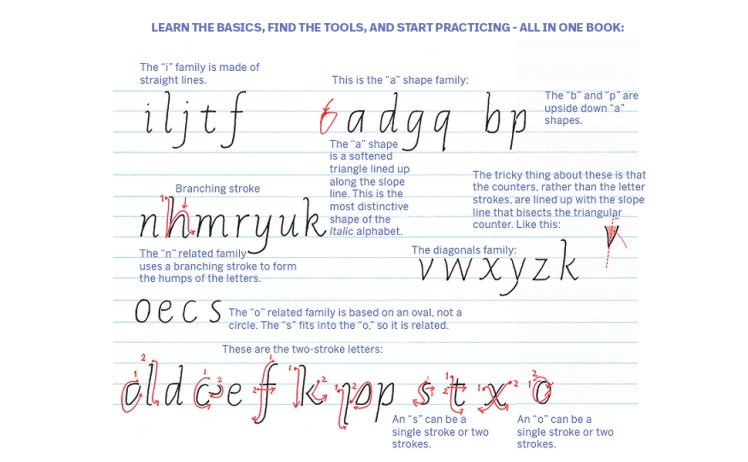 LEARN THE BASICS, FIND THE TOOLS, AND START PRACTICING - ALL IN ONE BOOK:
The "i" family is made of
straight lines.
This is the "a" shape family:
The "b" and "p" are
upside down "a"
shapes.
i l j t f
a d g q b p
The "a" shape
is a softened
triangle lined up
along the slope
line. This is the
most distinctive
shape of the
Italic alphabet.
The tricky thing about these is that
the counters, rather than the letter
strokes, are lined up with the slope
line that bisects the triangular
counter. Like this:
Branching stroke
1
n h m r y u k
v
The "n" related family
uses a branching stroke to form
the humps of the letters.
The diagonals family:
v w x y z k
o e c s
The "o" related family is based on an oval, not a
circle. The "s" fits into the "o," so it is related.
These are the two-stroke letters:
d e f k p s t x o
An "s" can be a
single stroke or two
strokes.
An "o" can be a
single stroke or two
strokes.